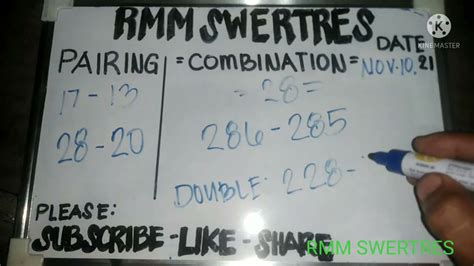 RMM SWERTRES
DATE
PAIRING
= COMBINATION =
NOV.10.21
17-13
= 28 =
28-20
286-285
DOUBLE: 228-
PLEASE:
SUBSCRIBE-LIKE-SHARE
RMM SWERTRES
KINEMASTER